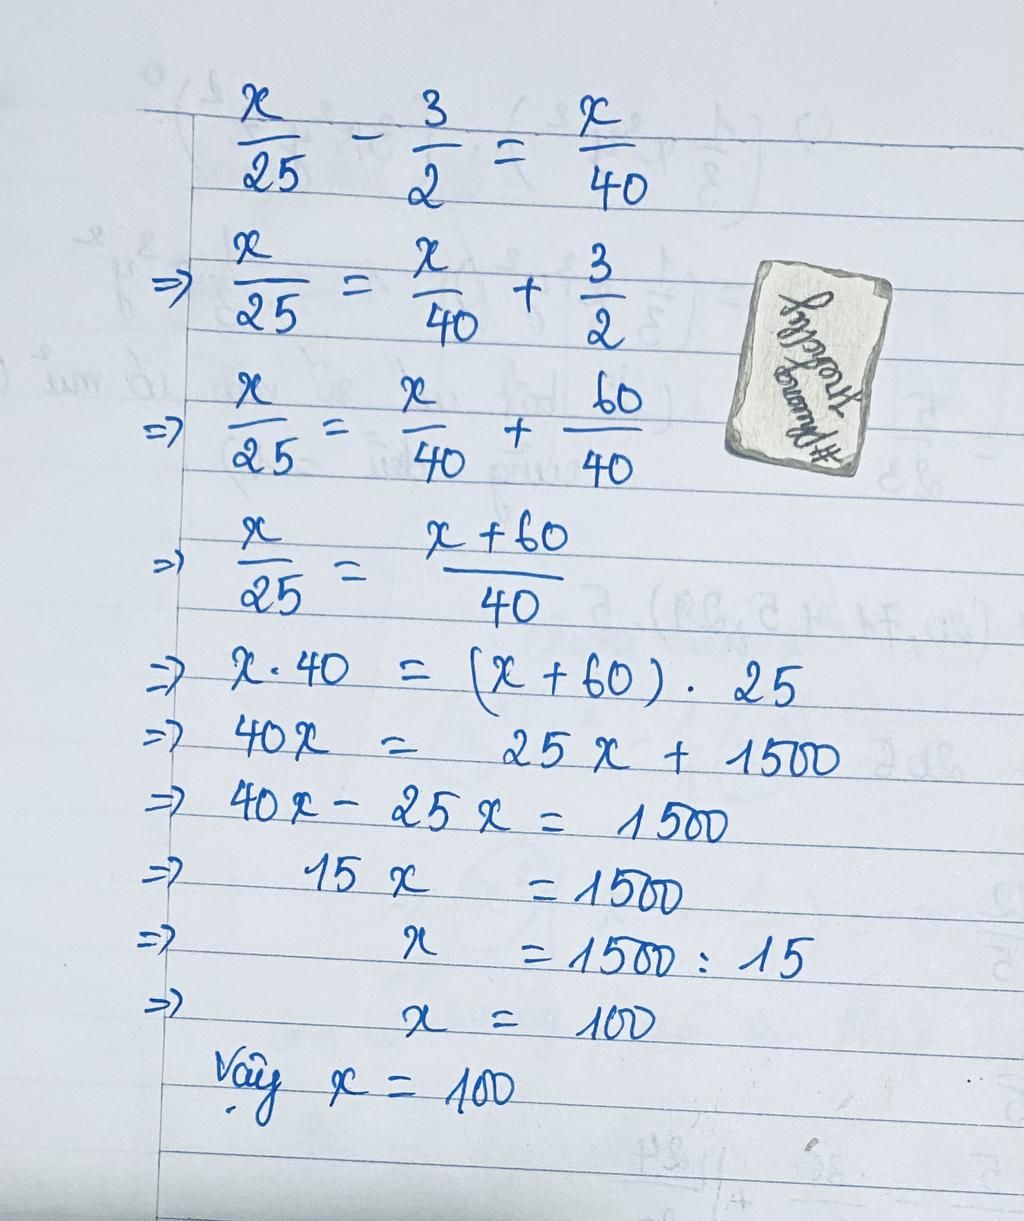 x/25 - 3/2 = x/40
=> x/25 = x/40 + 3/2
=> x/25 = x/40 + 60/40
=> x/25 = x + 60/40
=> x . 40 = (x + 60) . 25
=> 40x = 25x + 1500
=> 40x - 25x = 1500
=> 15x = 1500
=> x = 1500 : 15
=> x = 100
Vậy x = 100